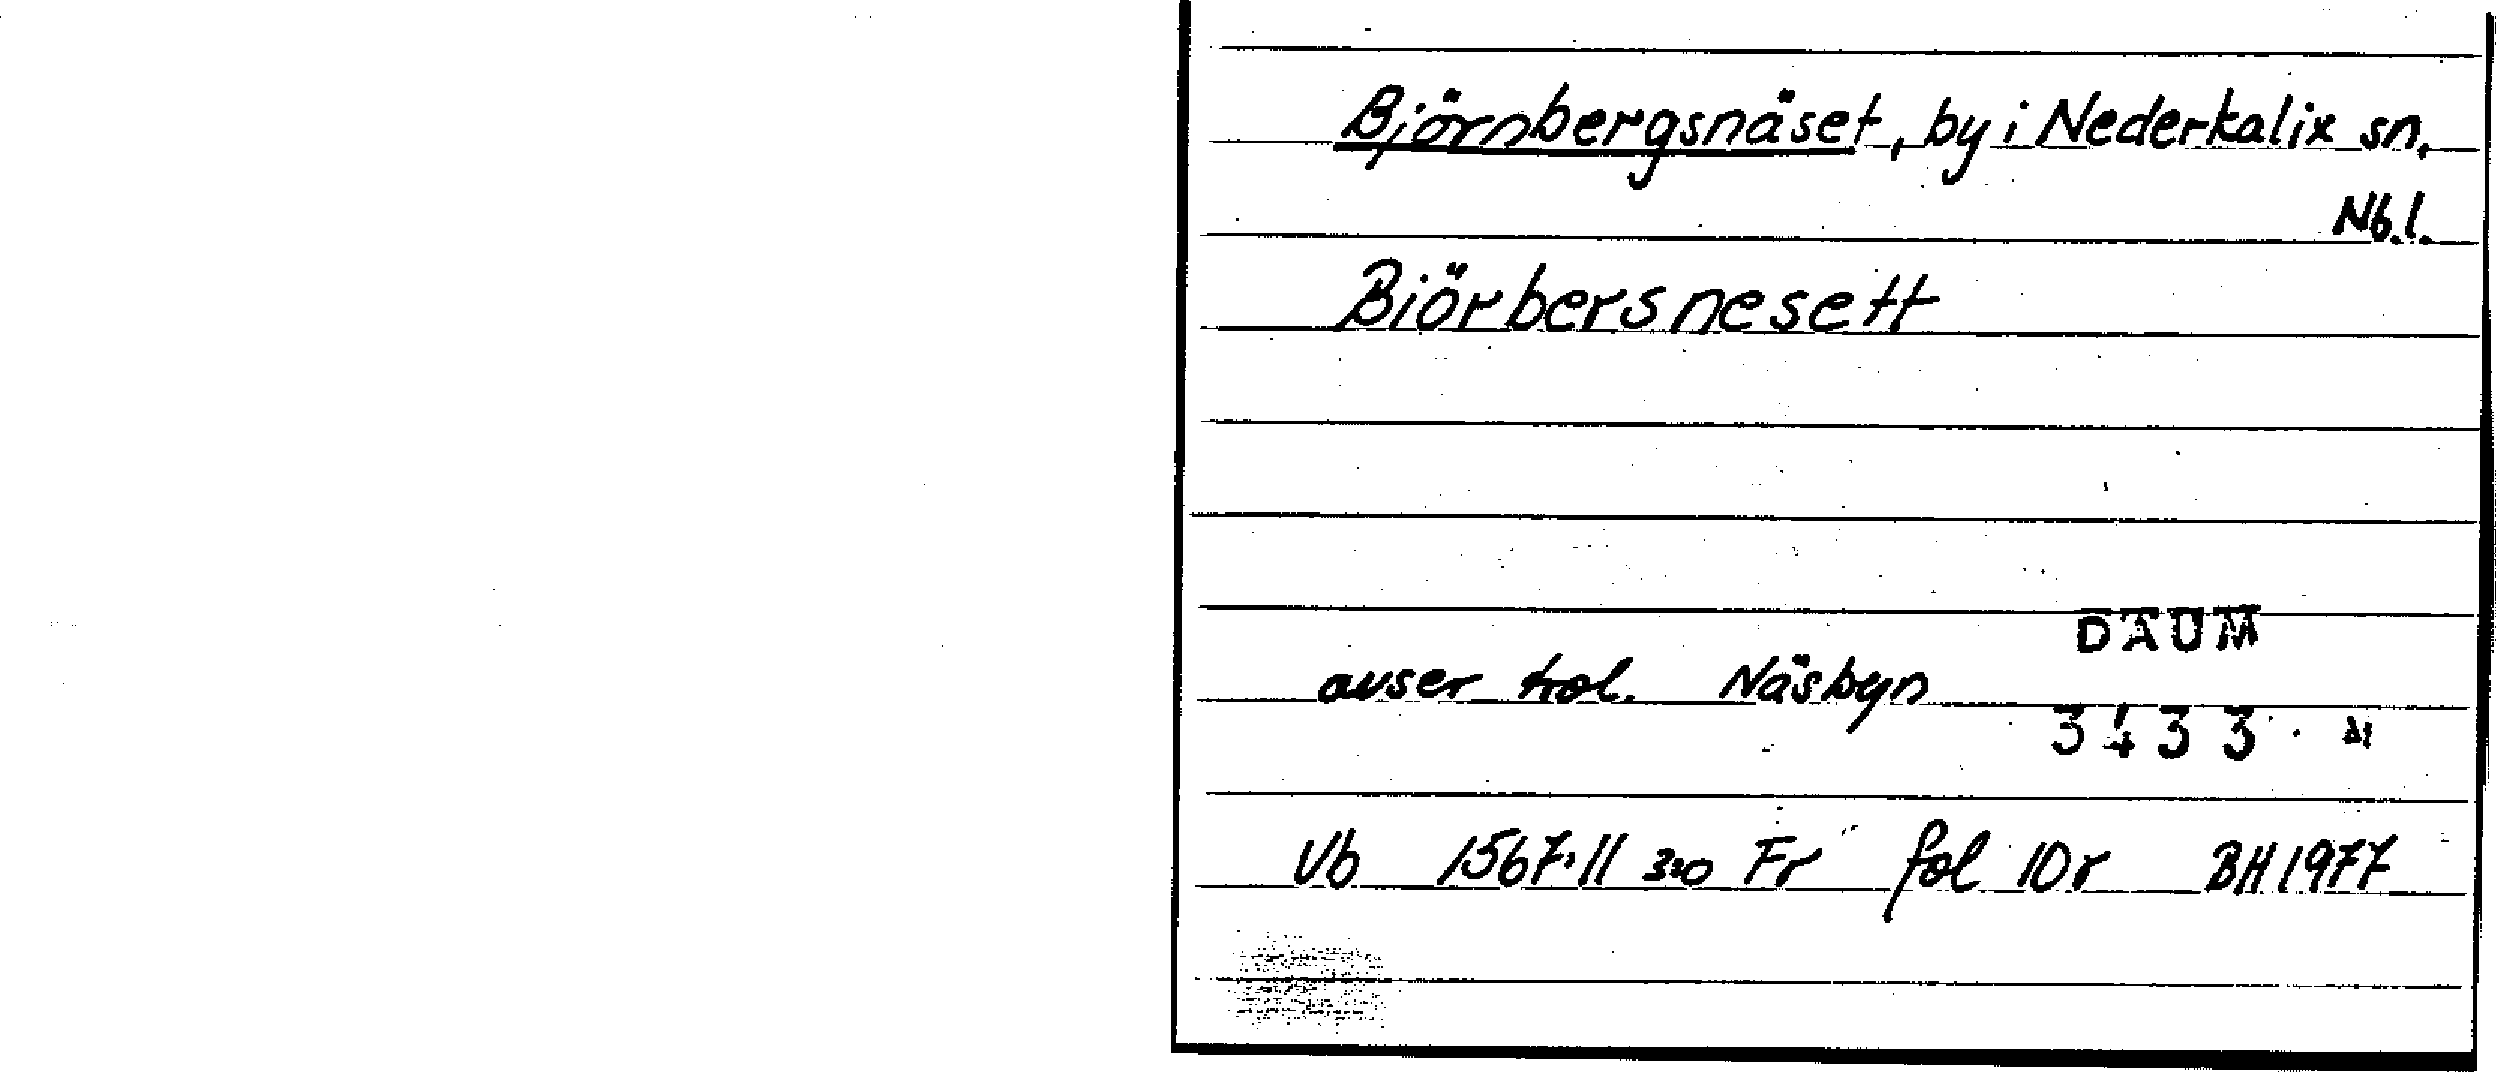 Björnbergsnäset, by i Nederkalix sn,
Nb.l.
Biörbersnesett
DAUM
avser trol. Näsbyn
3433
Vb 1567:11 3:0 Fr fol 10r BH 1977